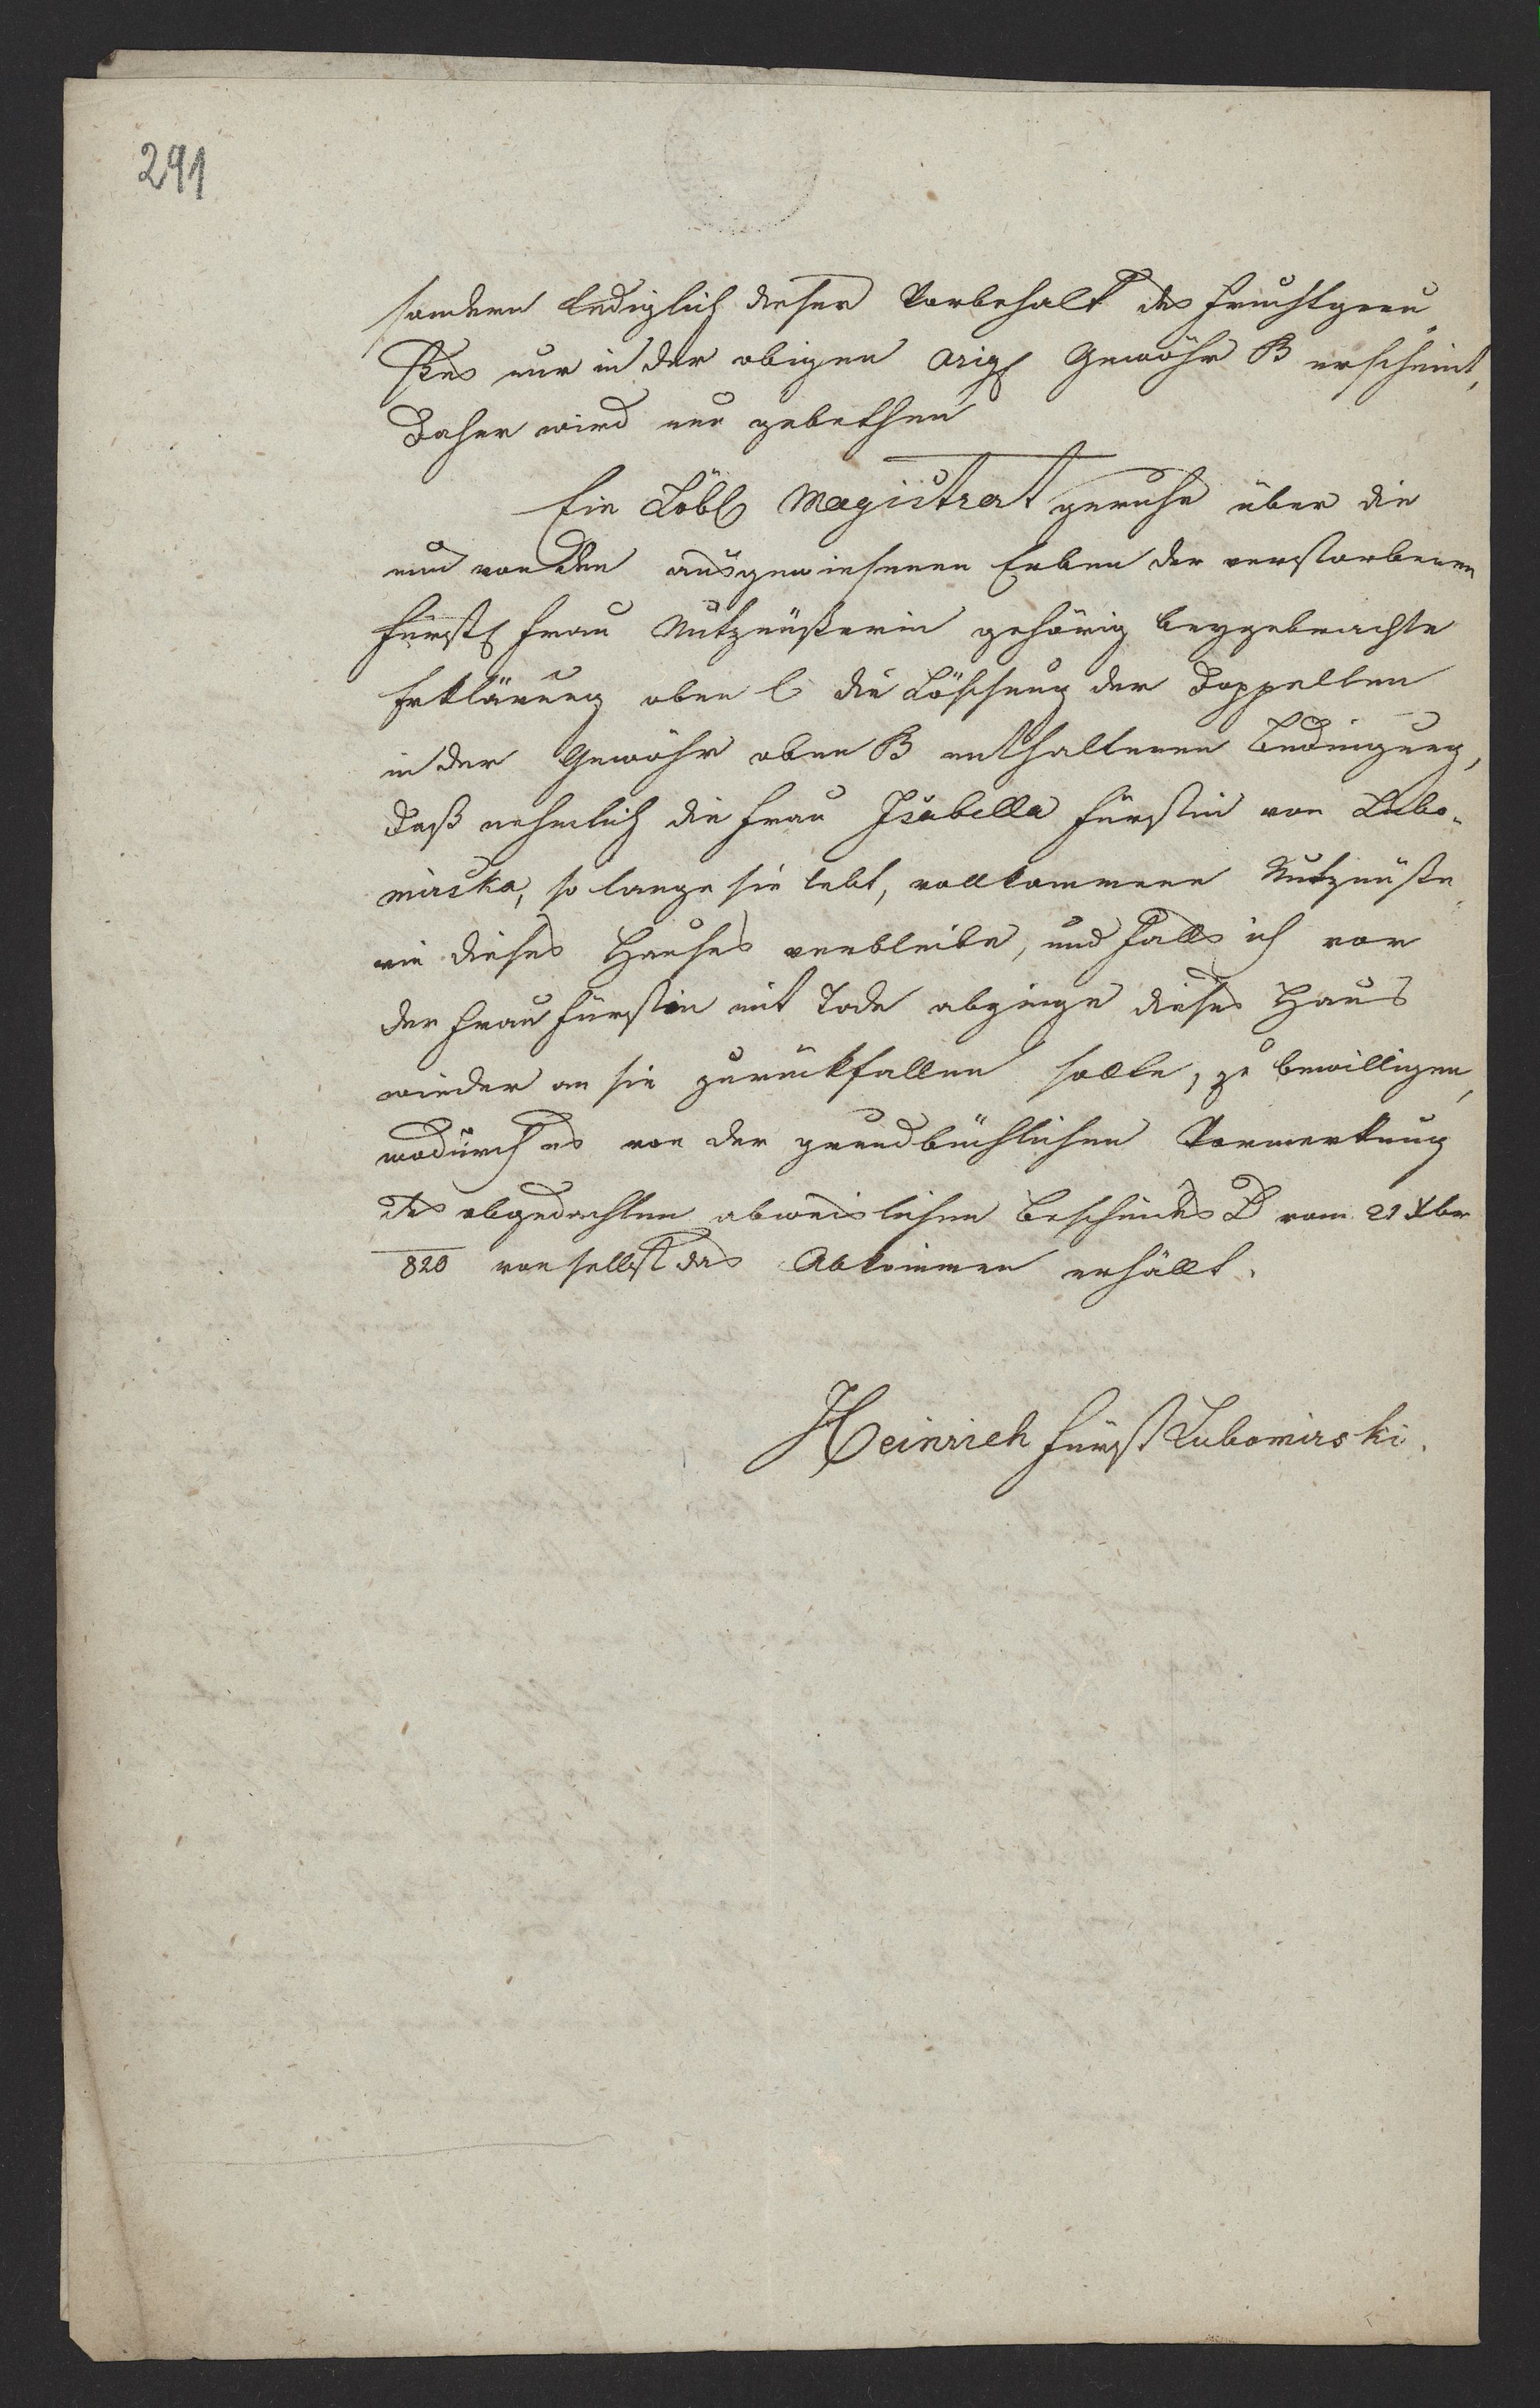 291
sondern lediglich dieser Vorbehalt des Fruchtgenu„
ßes nur in der obigen orig. Gewöhr B erscheint,
Daher wird nur gebethen
Ein Löbl Magistrat geruhe über die
nun von den ausgewiesenen Erben der verstorbenen
fürstl Frau Nutznüßerin gehörig beygebrachte
Erklärung oben C die Löschung der doppelten
in der Gewöhr oben B enthaltenen Bedingung,
daß nehmlich die Frau Isabella Fürstin von Lubo-
mirska, so lange sie lebt, vollkommene Nutznüße„
rin dieses Hauses verbleibe, und falls ich vor
der Frau Fürstin mit Tode abginge dieses Haus
wieder an sie zurückfallen solle, zu bewilligen,
wodurch es von der grundbüchlichen Vormerkung
des obgedachten abweislichen Bescheides D vom 21 Xber
820 von selbst das Abkommen erhällt.
Heinrich Fürst Lubomirski.